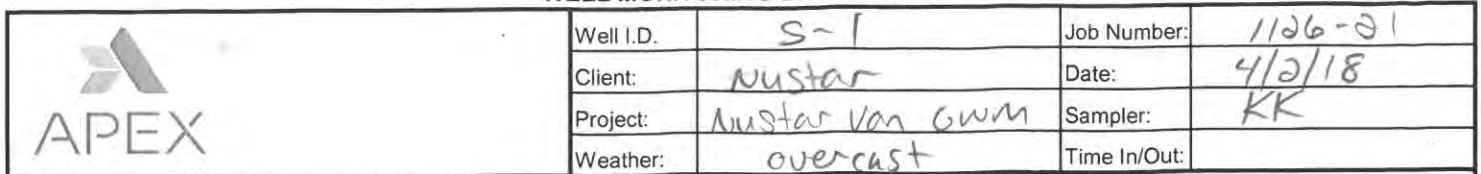 Well I.D. S-1 Job Number: 1126-21
Client: Nustar Date: 4/2/18
APEX Project: Nustar Van GWM Sampler: KK
Weather: overcast Time In/Out: